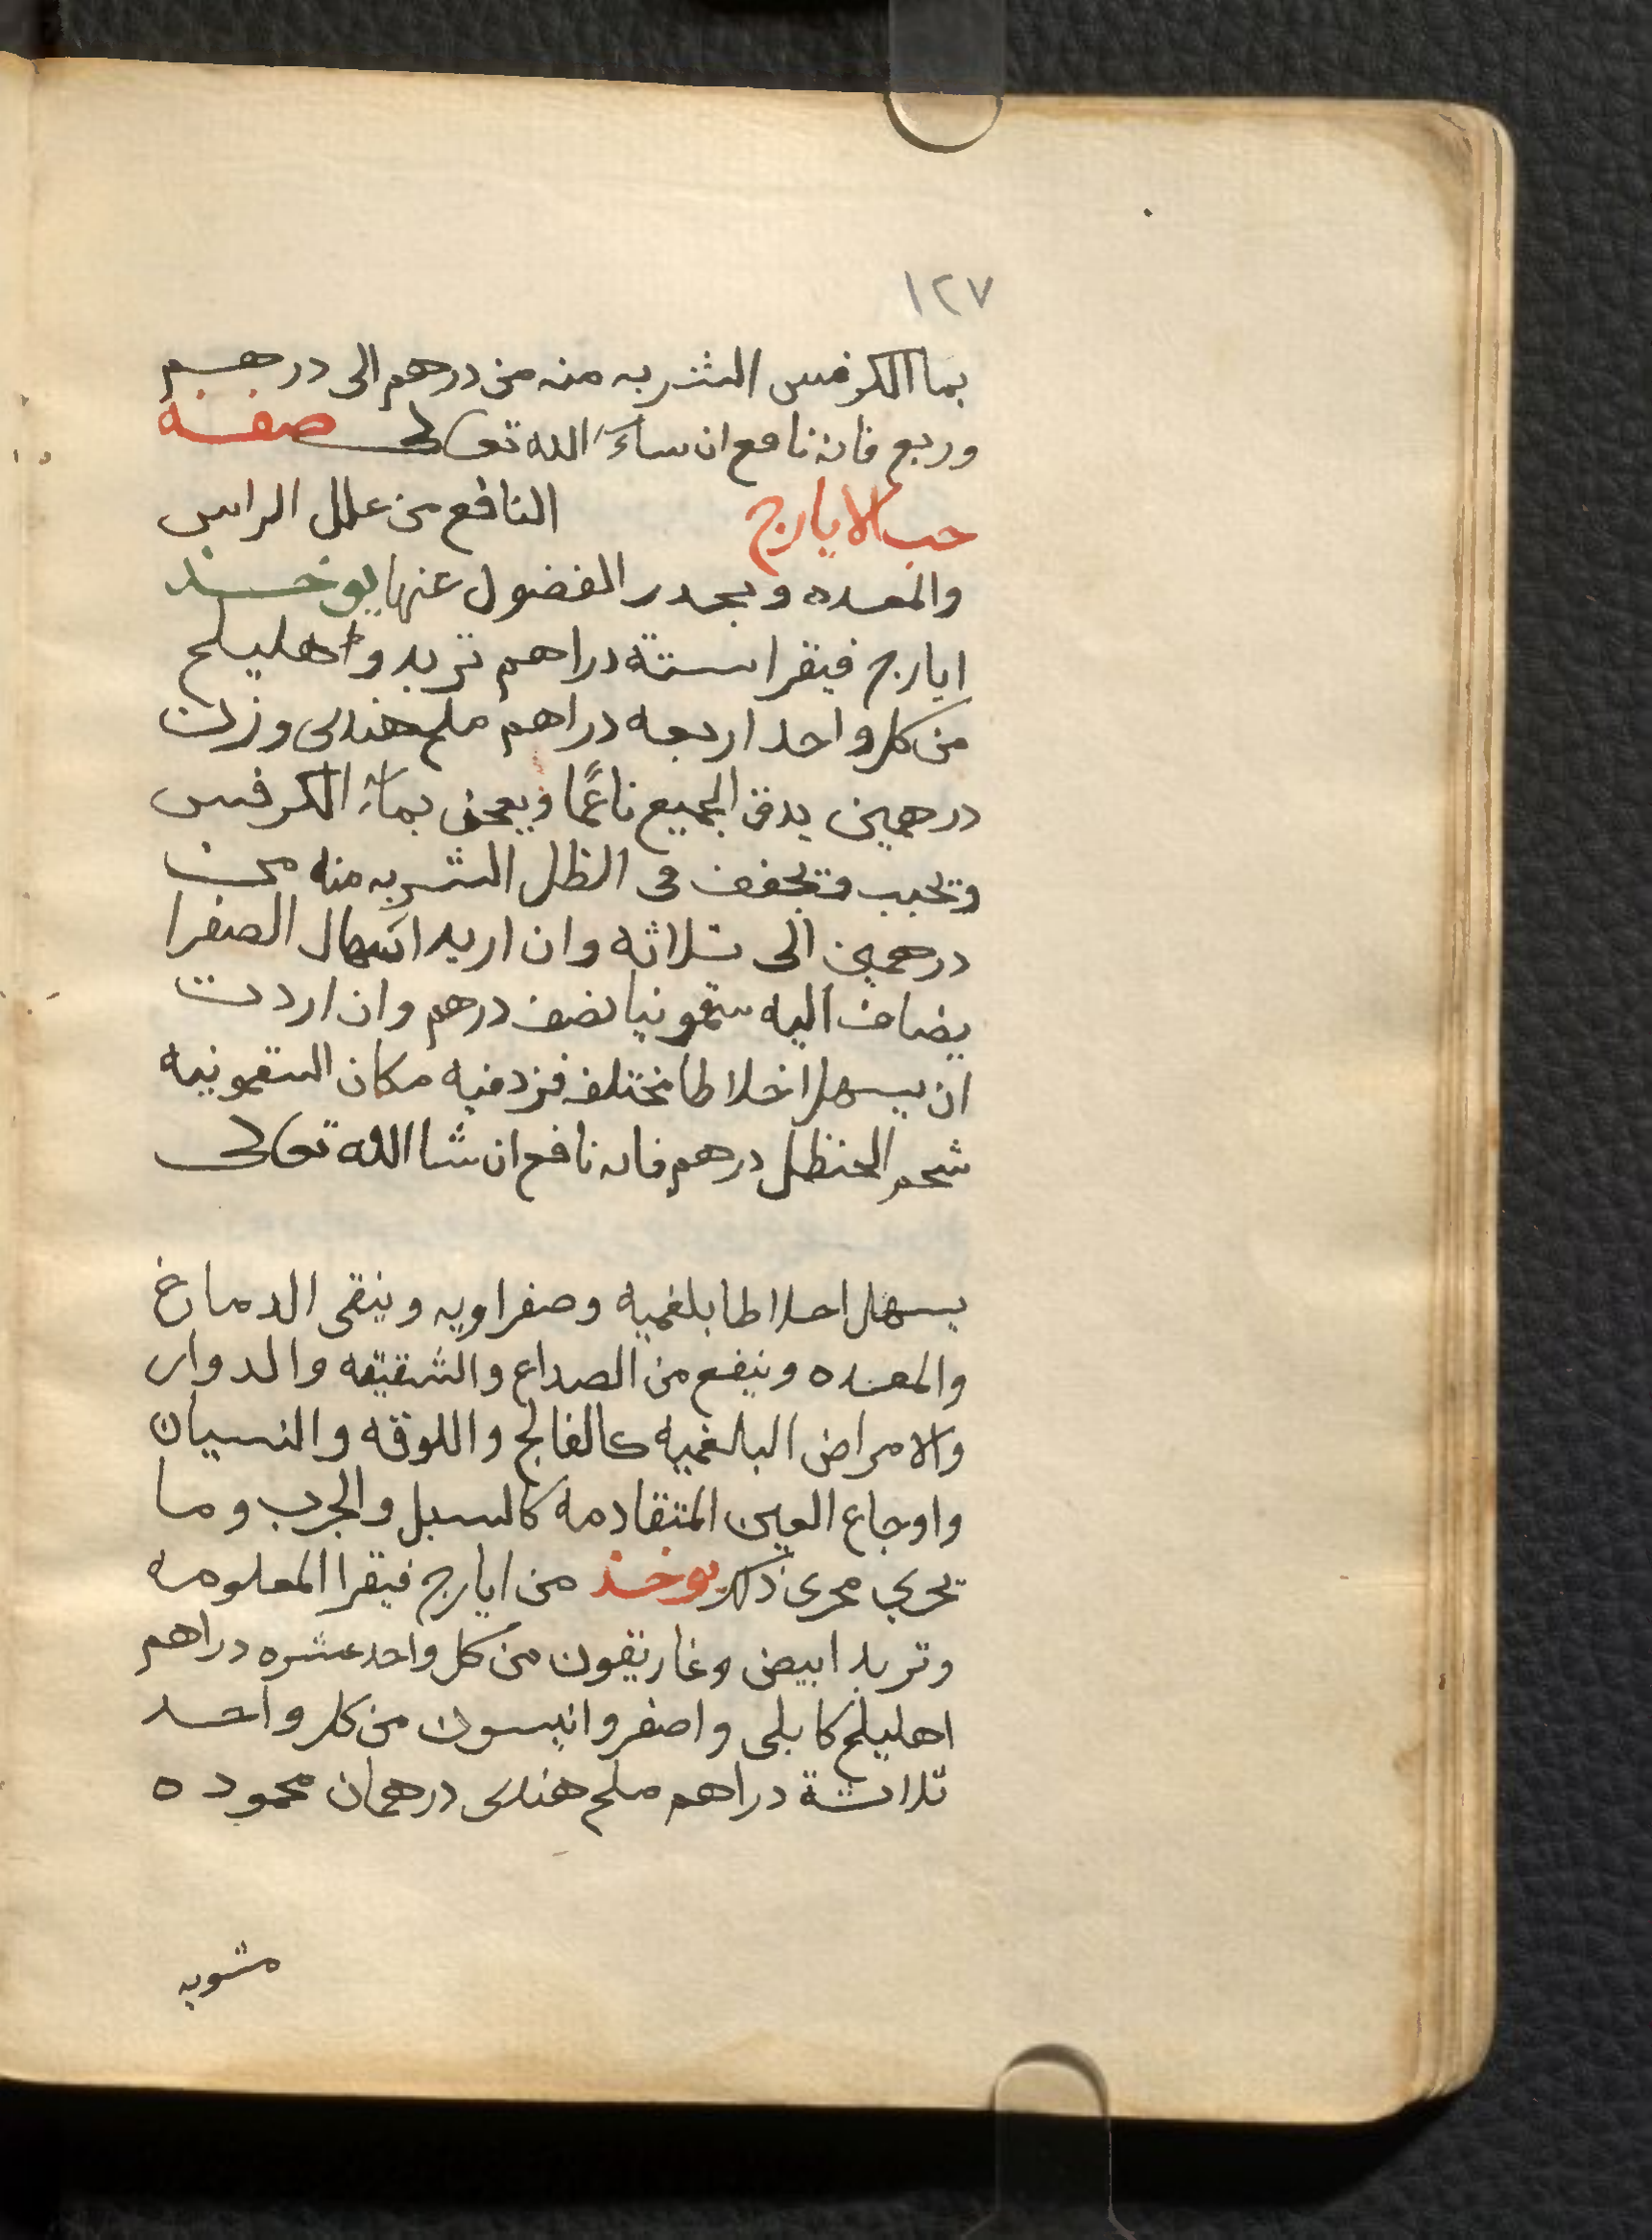 ١٢٧
بما الكرفس الشربه منه من درهم الى درهم
وربع فانه نافع ان ساءَ الله تعالى صفة
حب الايارج النافع من علل الراس
والمعده ويحدر الفضول عنها يوخذ
ايارج فيقرا ستة دراهم تربد واهليلج
من كل واحد اربعه دراهم ملح هندى وزن
درهمين يدق الجميع ناعمًا ويعجن بماء الكرفس
وتحبب وتجفف فى الظل الشربه منه من
درهمين الى ثلاثه وان اريد اسهال الصفرا
يضاف اليه سقمونيا نصف درهم وان اردت
ان يسهل اخلاطا مختلفه فزد فيه مكان السقمونيه
شحم الحنظل درهم فانه نافع ان شا الله تعالى
يسهل اخلاطا بلغميه وصفراويه وينقى الدماغ
والمعده وينفع من الصداع والشقيقه والدوار
والامراض البالغميه كالفالج واللوقه والنسيان
واوجاع العين المتقادمه كالسبل والجرب وما
يجري مجرى ذلك يوخذ من ايارج فيقرا المعلومه
وتربد ابيض وغاريقون من كل واحد عشره دراهم
اهليلج كابلى واصفر وانيسون من كل واحد
ثلاثة دراهم ملح هندى درهمان محموده
مشويه